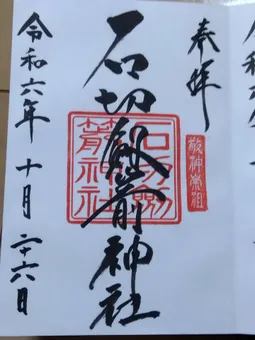 奉拝
敬神崇祖
石切劔箭神社
石切劔
箭神社
令和六年 十月 二十六日